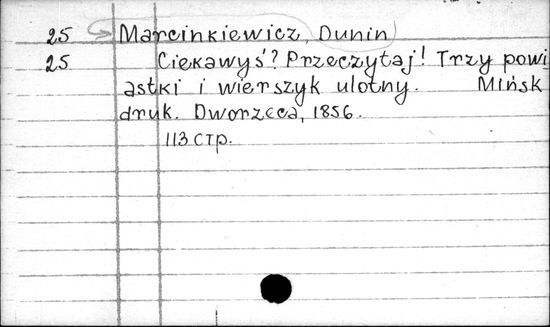 25 Marcinkiewicz, Dunin
25 Ciekawyś? Przeczytaj! Trzy powi
astki i wierszyk ulotny. Mińsk
druk. Dworzeca, 1856.
113 стр.